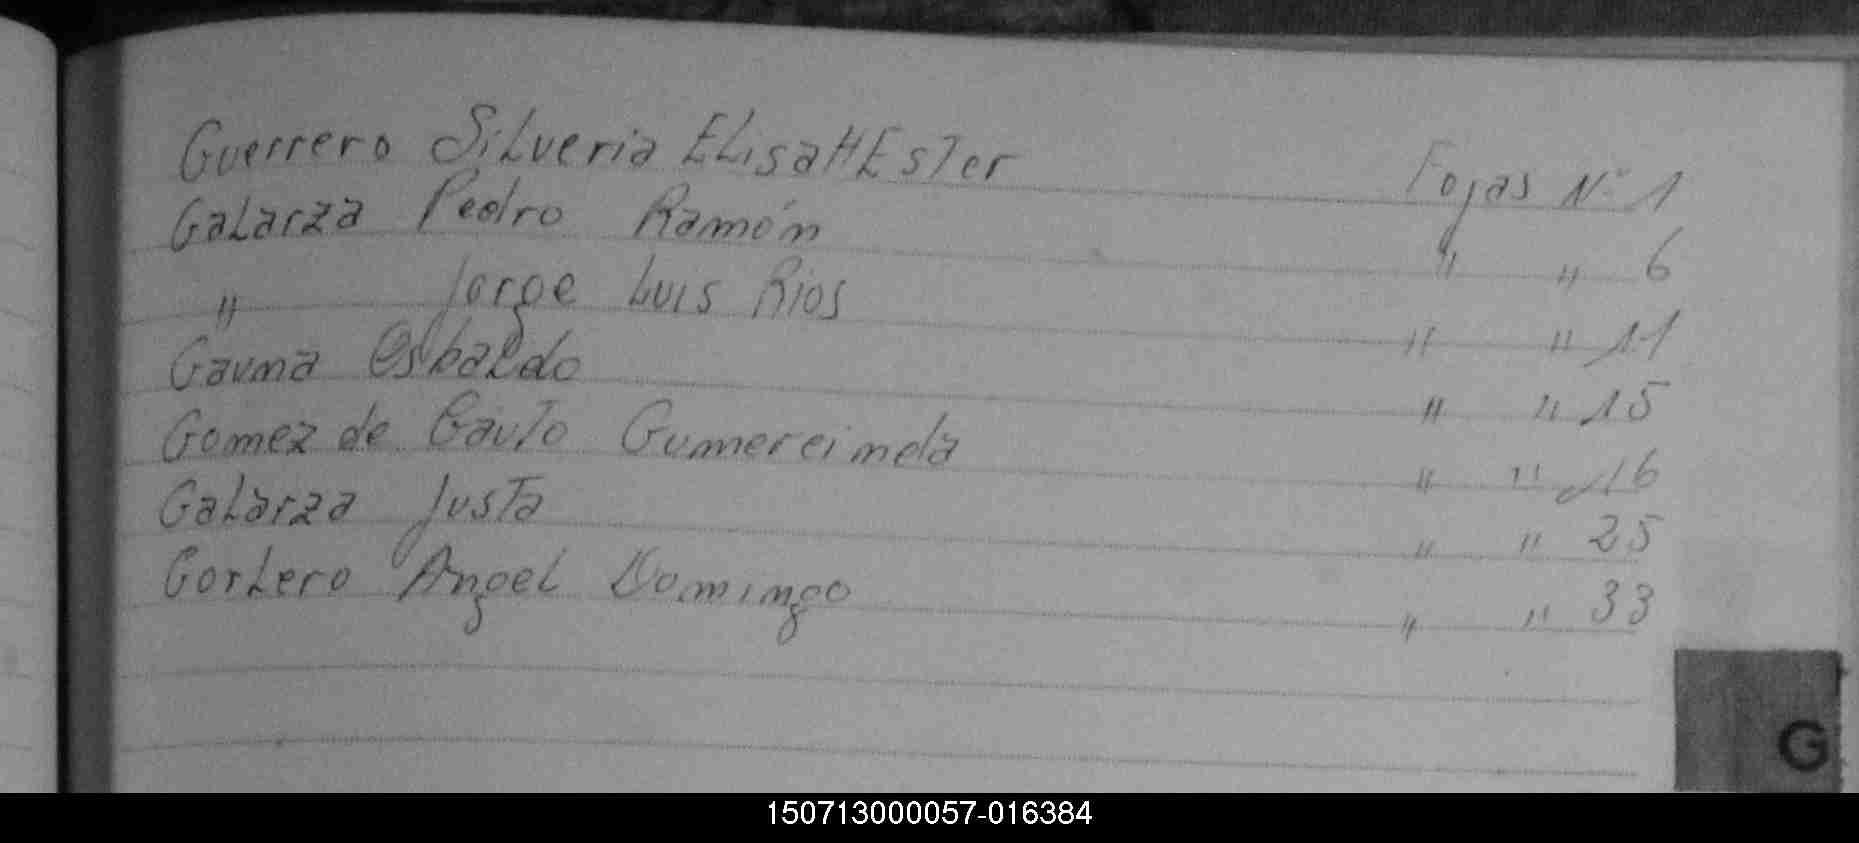 Guerrero Silveria Elisa H Ester Fojas Nº 1
Galarza Pedro Ramón " " 6
" Jorge Luis Rios " " 11
Gauna Osbaldo " " 15
Gomez de Gauto Gumereimda " " 16
Galarza Justa " " 25
Gorlero Angel Domingo " " 33
G
150713000057-016384